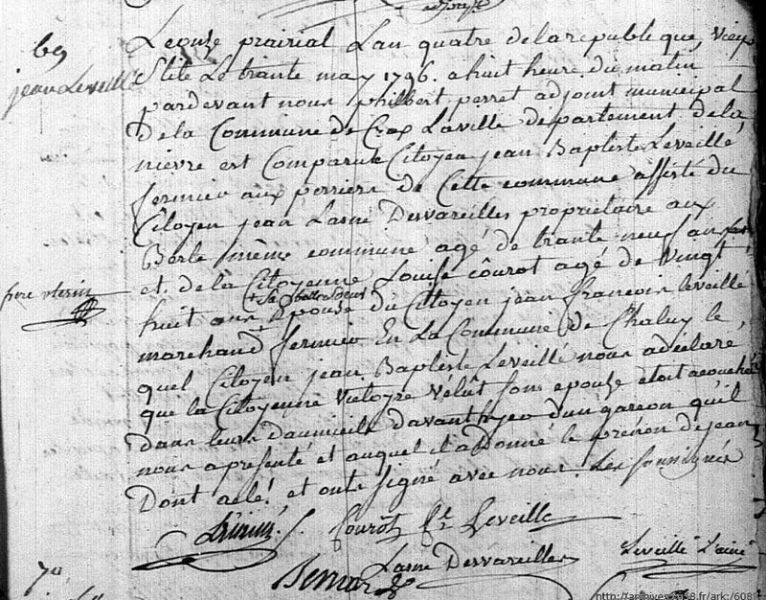 69
jean Leveillé
Le onze prairial L'an quatre de la republique, vieux
Stile Le trante may 1796. a huit heure du matin
pardevant nous philbert perret adjoint municipal
de la Commune de Crox Laville departement de la
nievre est Comparut Citoyen jean Baptiste Leveillé
fermier aux perriere de Cette commune assisté du
Citoyen jean Lasné Desvareilles proprietaire aux
Berle même commune agé de trante neuf ans
frere uterin
et de la Citoyenne Louise courot agé de vingt
+ Sa belle Soeur
huit ans + Epouse du Citoyen jean francois leveillé
marchand fermier En La Commune de Chaluy le
quel Citoyen jean Baptiste Leveillé nous a déclaré
que la Citoyenne Victoyre Velût son epouze etoit acouchée
dans leurs daumicille davanthyer d'un garcon quil
nous a presenté et auquel il a donné le prénon de jean
Dont acte! et onts signé avec nous. Les soussignés
Courot fe Leveillé
Lasné Desvareilles
Leveillé L'ainé
70